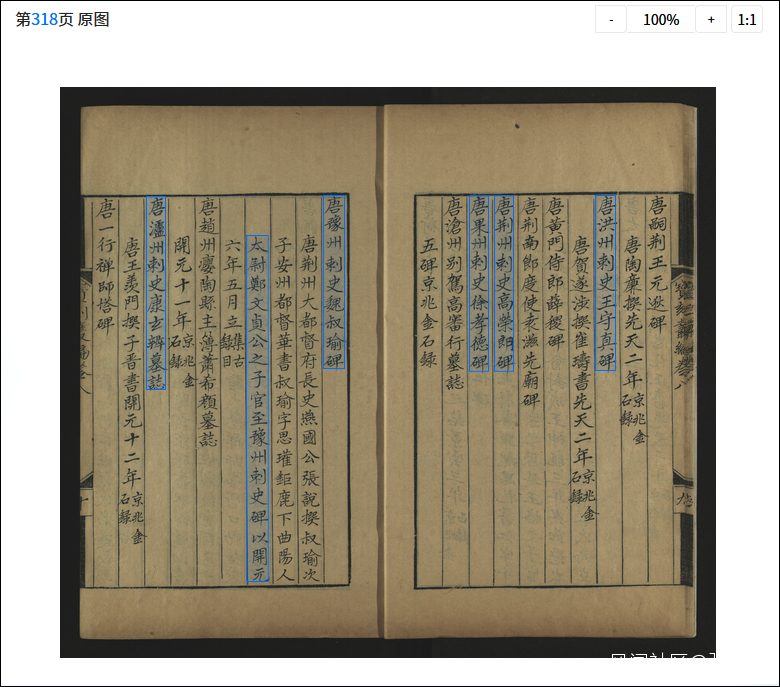 第318页 原图
- 100% + 1:1
唐嗣荆王元逖碑
唐陶廉撰先天二年京兆金石錄
唐洪州刺史王守真碑
唐賀遂涉撰崔璹書先天二年京兆金石錄
唐黄門侍郎薛稷碑
唐荆南節度使表滋先廟碑
唐荆州刺史高崇朗碑
唐果州刺史徐孝德碑
唐滄州别駕高審行墓誌
五碑京兆金石錄
唐豫州刺史魏叔瑜碑
唐荆州大都督府長史燕國公張說撰叔瑜次
子安州都督華書叔瑜字思瓘鉅鹿下曲陽人
太尉鄭文貞公之子官至豫州刺史碑以開元
六年五月立集古錄目
唐趙州慶陶縣主薄蕭希顔墓誌
開元十一年京兆金石錄
唐瀘州刺史康玄辨墓誌
唐王羡門撰子晋書開元十二年京兆金石錄
唐一行禅師塔碑